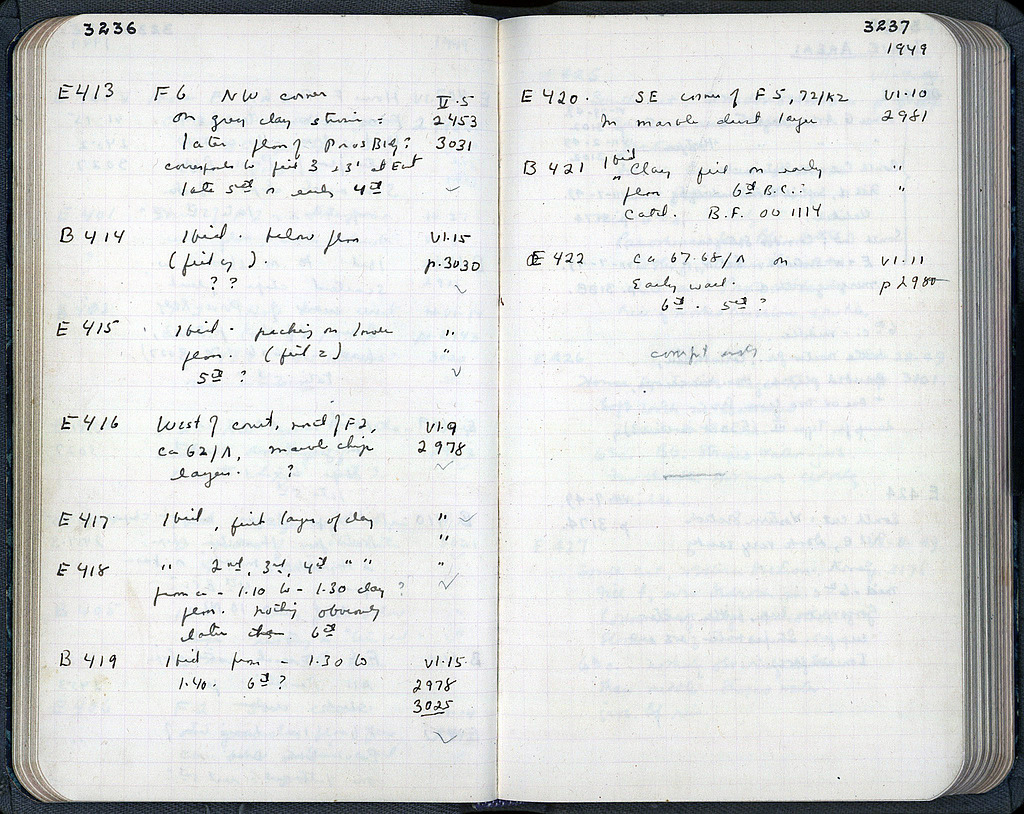 3236
E 413 F 6 NW corner V.5
on grey clay stroses = 2453
later floor of Pros Bldg? 3031
corresponds to fill 3 & 3' at East
late 5th or early 4th ✓
B 414 Ibid. below floor VI.15
(fill 4). p. 3030
? ? ✓
E 415 Ibid. packing on lower "
floor. (fill 2) "
5th ? ✓
E 416 West of court, north of F 2, VI.9
ca 62/Λ, marble chip 2978
layers. ? ✓
E 417 Ibid, first layer of clay " ✓
"
E 418 " 2nd, 3rd, 4th " " "
from ca - 1.10 to - 1.30 clay ? ✓
floor. nothing obviously
later than 6th
B 419 Ibid from - 1.30 to VI.15
1.40. 6th ? 2978
3025
✓
3237
1949
E 420. SE corner of F 5, 72/ΚΖ VI.10
In marble dust layer 2981
B 421 Ibid
" Clay fill on early "
floor 6th B.C. "
Catd. B.F. 00 1114
E 422 ca 67-68/Λ on VI.11
Early wall. p 2980
6th. 5th ?